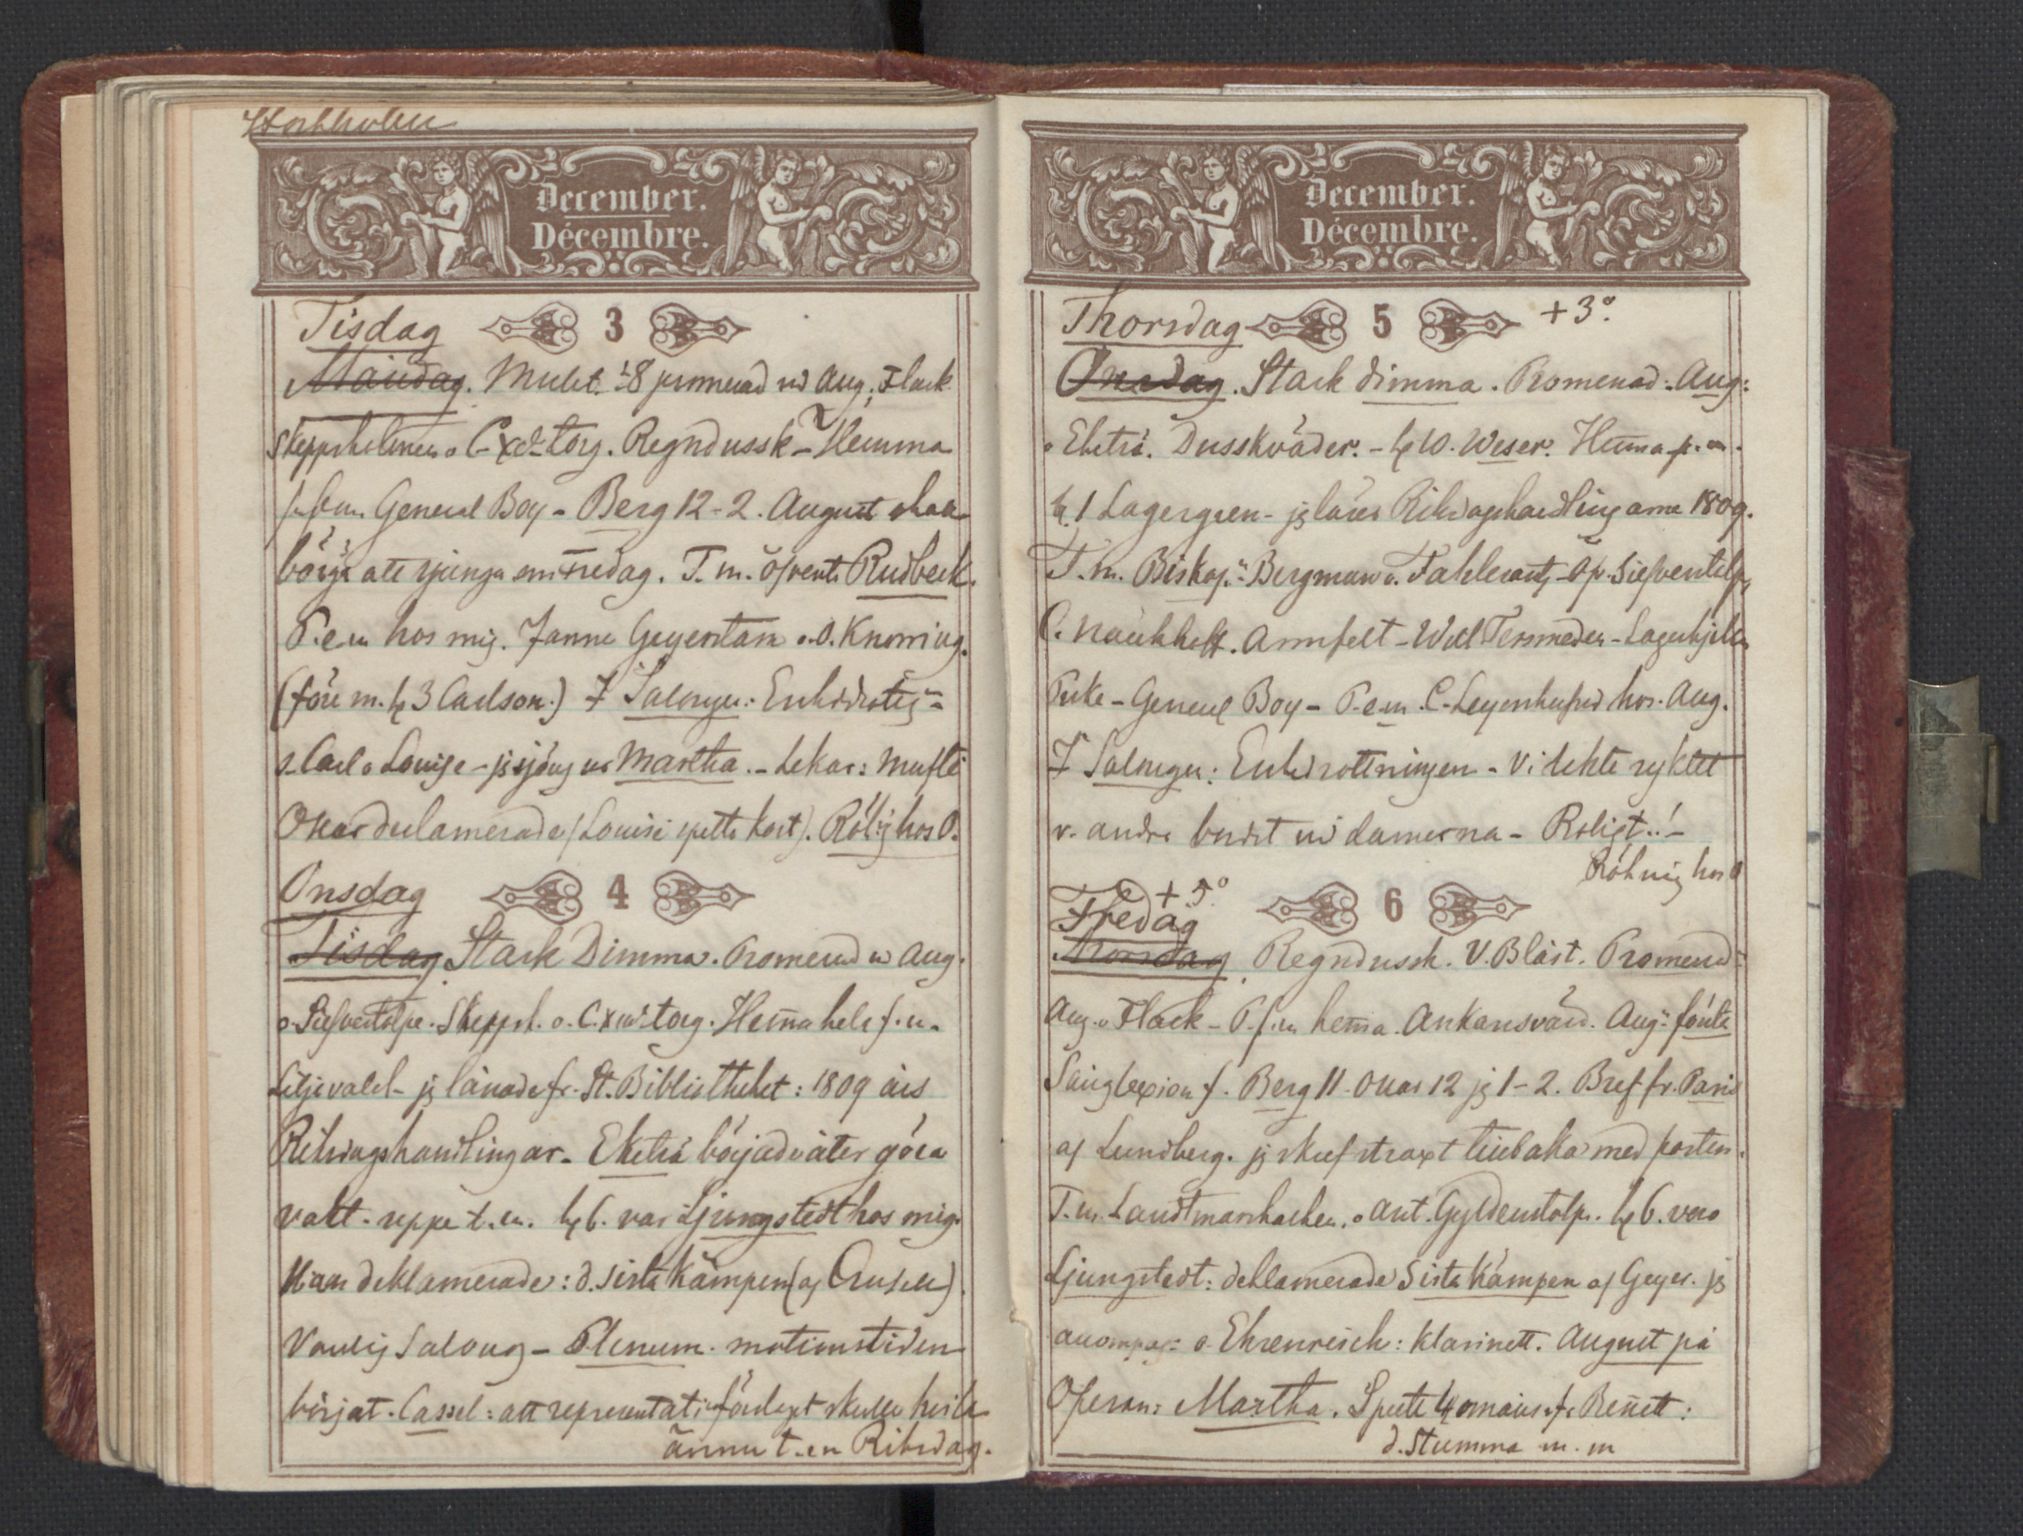 Stockholm
December.
Décembre.
Tisdag 3
Måndag. Mulet. -8 promenad m Aug., Flack
Skeppsholmen o C. XIII torg. Regndussk - Hemma
f.m. General Boy - Berg 12-2. August skall
börja att sjunga om fredag. T. m. öfverste Rudbeck.
P. e m hos mig. Janne Geijerstam o. O. Knorring.
(före m. kl 3 Carlson.) I Salongen: Enkedrottg:n
s. Carl o Louise - jg sjöng ur Martha. - Lekar: Mufti
Oscar deklamerade (Louise spelte kort). Röhg hos O.
Onsdag 4
Tisdag Stark Dimma. Promenad m Aug.
o Silfverstolpe. Skepph. o. C. XIII torg. Hemma hela f. m.
Liljevalch - jg lånade fr. St. Bibliotheket: 1809 års
Riksdagshandlingar. Eketrä började åter göra
vakt. uppe t. m. kl 6. var Ljungstedt hos mig.
Han deklamerade: d. sista Kämpen (af
Vanlig Salong - Plenum. motionstiden
börjat. Cassel: att representat: förslaget skulle hvila
ännu t. en Riksdag.
December.
Décembre.
Thorsdag 5 +3°.
Onsdag. Stark dimma. Promenad. Aug:
o Eketrä. Duskväder. - kl 10. Weser. Hemma f. m.
kl. 1 Lagergren - jg läser Riksdagshandlingarne 1809.
T. m. Biskop:n Bergman o. Fahlcrantz - Öf. Silfverstolpe
C. Nauckhoff. Armfelt - Wall Tersmeden - Lagerhjelm
Puke - General Boy - P. e m. C. Leijonhufvud hos Aug.
I Salongen: Enkedrottningen - Vi lekte ryktet
v. andra bordet m damerna - Roligt..! -
Röhrig hos O
Fredag +5° 6
Thorsdag Regndussk. V. Blåst. Promenad:
Aug. o Flack - P. f. m hemma. Ankarsvärd. Aug:s första
Sånglexion f. Berg 11. Oscar 12 jg 1-2. Bref fr. Paris
af Lundberg. jg skref straxt tillbaka med posten.
T. m. Landtmarskalken. o Ant. Gyldenstolpe. kl 6. voro
Ljungstedt: deklamerade Sista Kämpen af Geyer. jg
acompag: o Ehrenreich: klarinett. August på
Operan: Martha. Spelte 4 f Bennett:
d. Stumma m. m